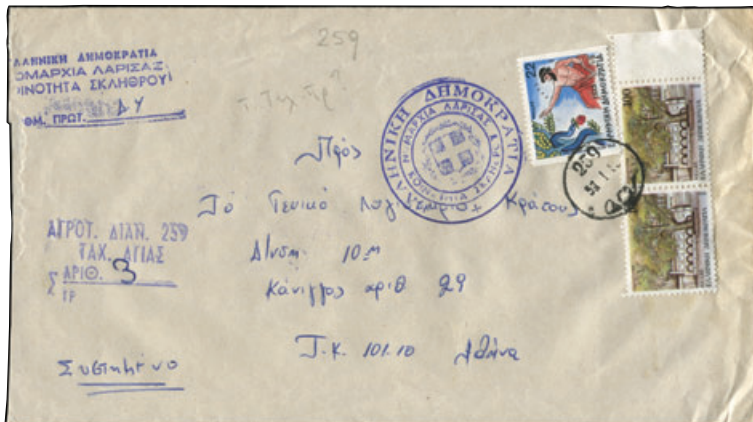 259
ΛΛΗΝΙΚΗ ΔΗΜΟΚΡΑΤΙΑ
ΟΜΑΡΧΙΑ ΛΑΡΙΣΑΣ
ΟΙΝΟΤΗΤΑ ΣΚΛΗΘΡΟΥ
ΘΜ. ΠΡΩΤ.
ΕΛΛΗΝΙΚΗ ΔΗΜΟΚΡΑΤΙΑ
ΝΟΜΑΡΧΙΑ ΛΑΡΙΣΑΣ
ΚΟΙΝΟΤΗΤΑ ΣΚΛΗΘΡΟΥ
22
ΕΛΛΗΝΙΚΗ ΔΗΜΟΚΡΑΤΙΑ
259
Πρός
Τό Γενικό Λογιστήριο Κράτους
Δ/νση 10η
Κάνιγγος αριθ 29
Τ.Κ. 101.10 Αθήνα
ΑΓΡΟΤ. ΔΙΑΝ. 259
ΤΑΧ. ΑΓΙΑΣ
Σ ΑΡΙΘ. 3
ΓΡ
Συστημένο